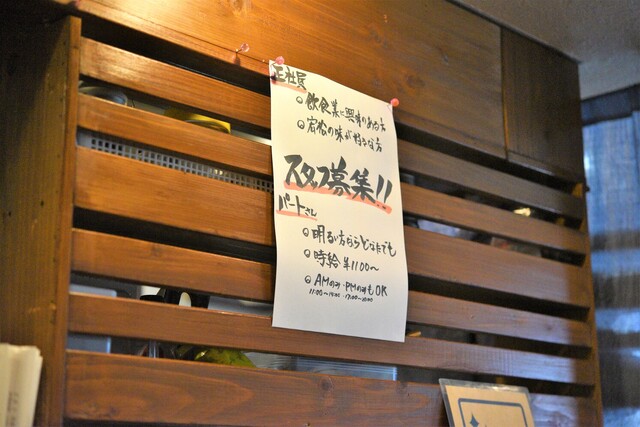 正社員
◎飲食業に興味のある方
◎宕松の味が好きな方
スタッフ募集!!
パートさん
◎明るい方ならどなたでも
◎時給 ¥1100〜
◎AMのみ・PMのみもOK